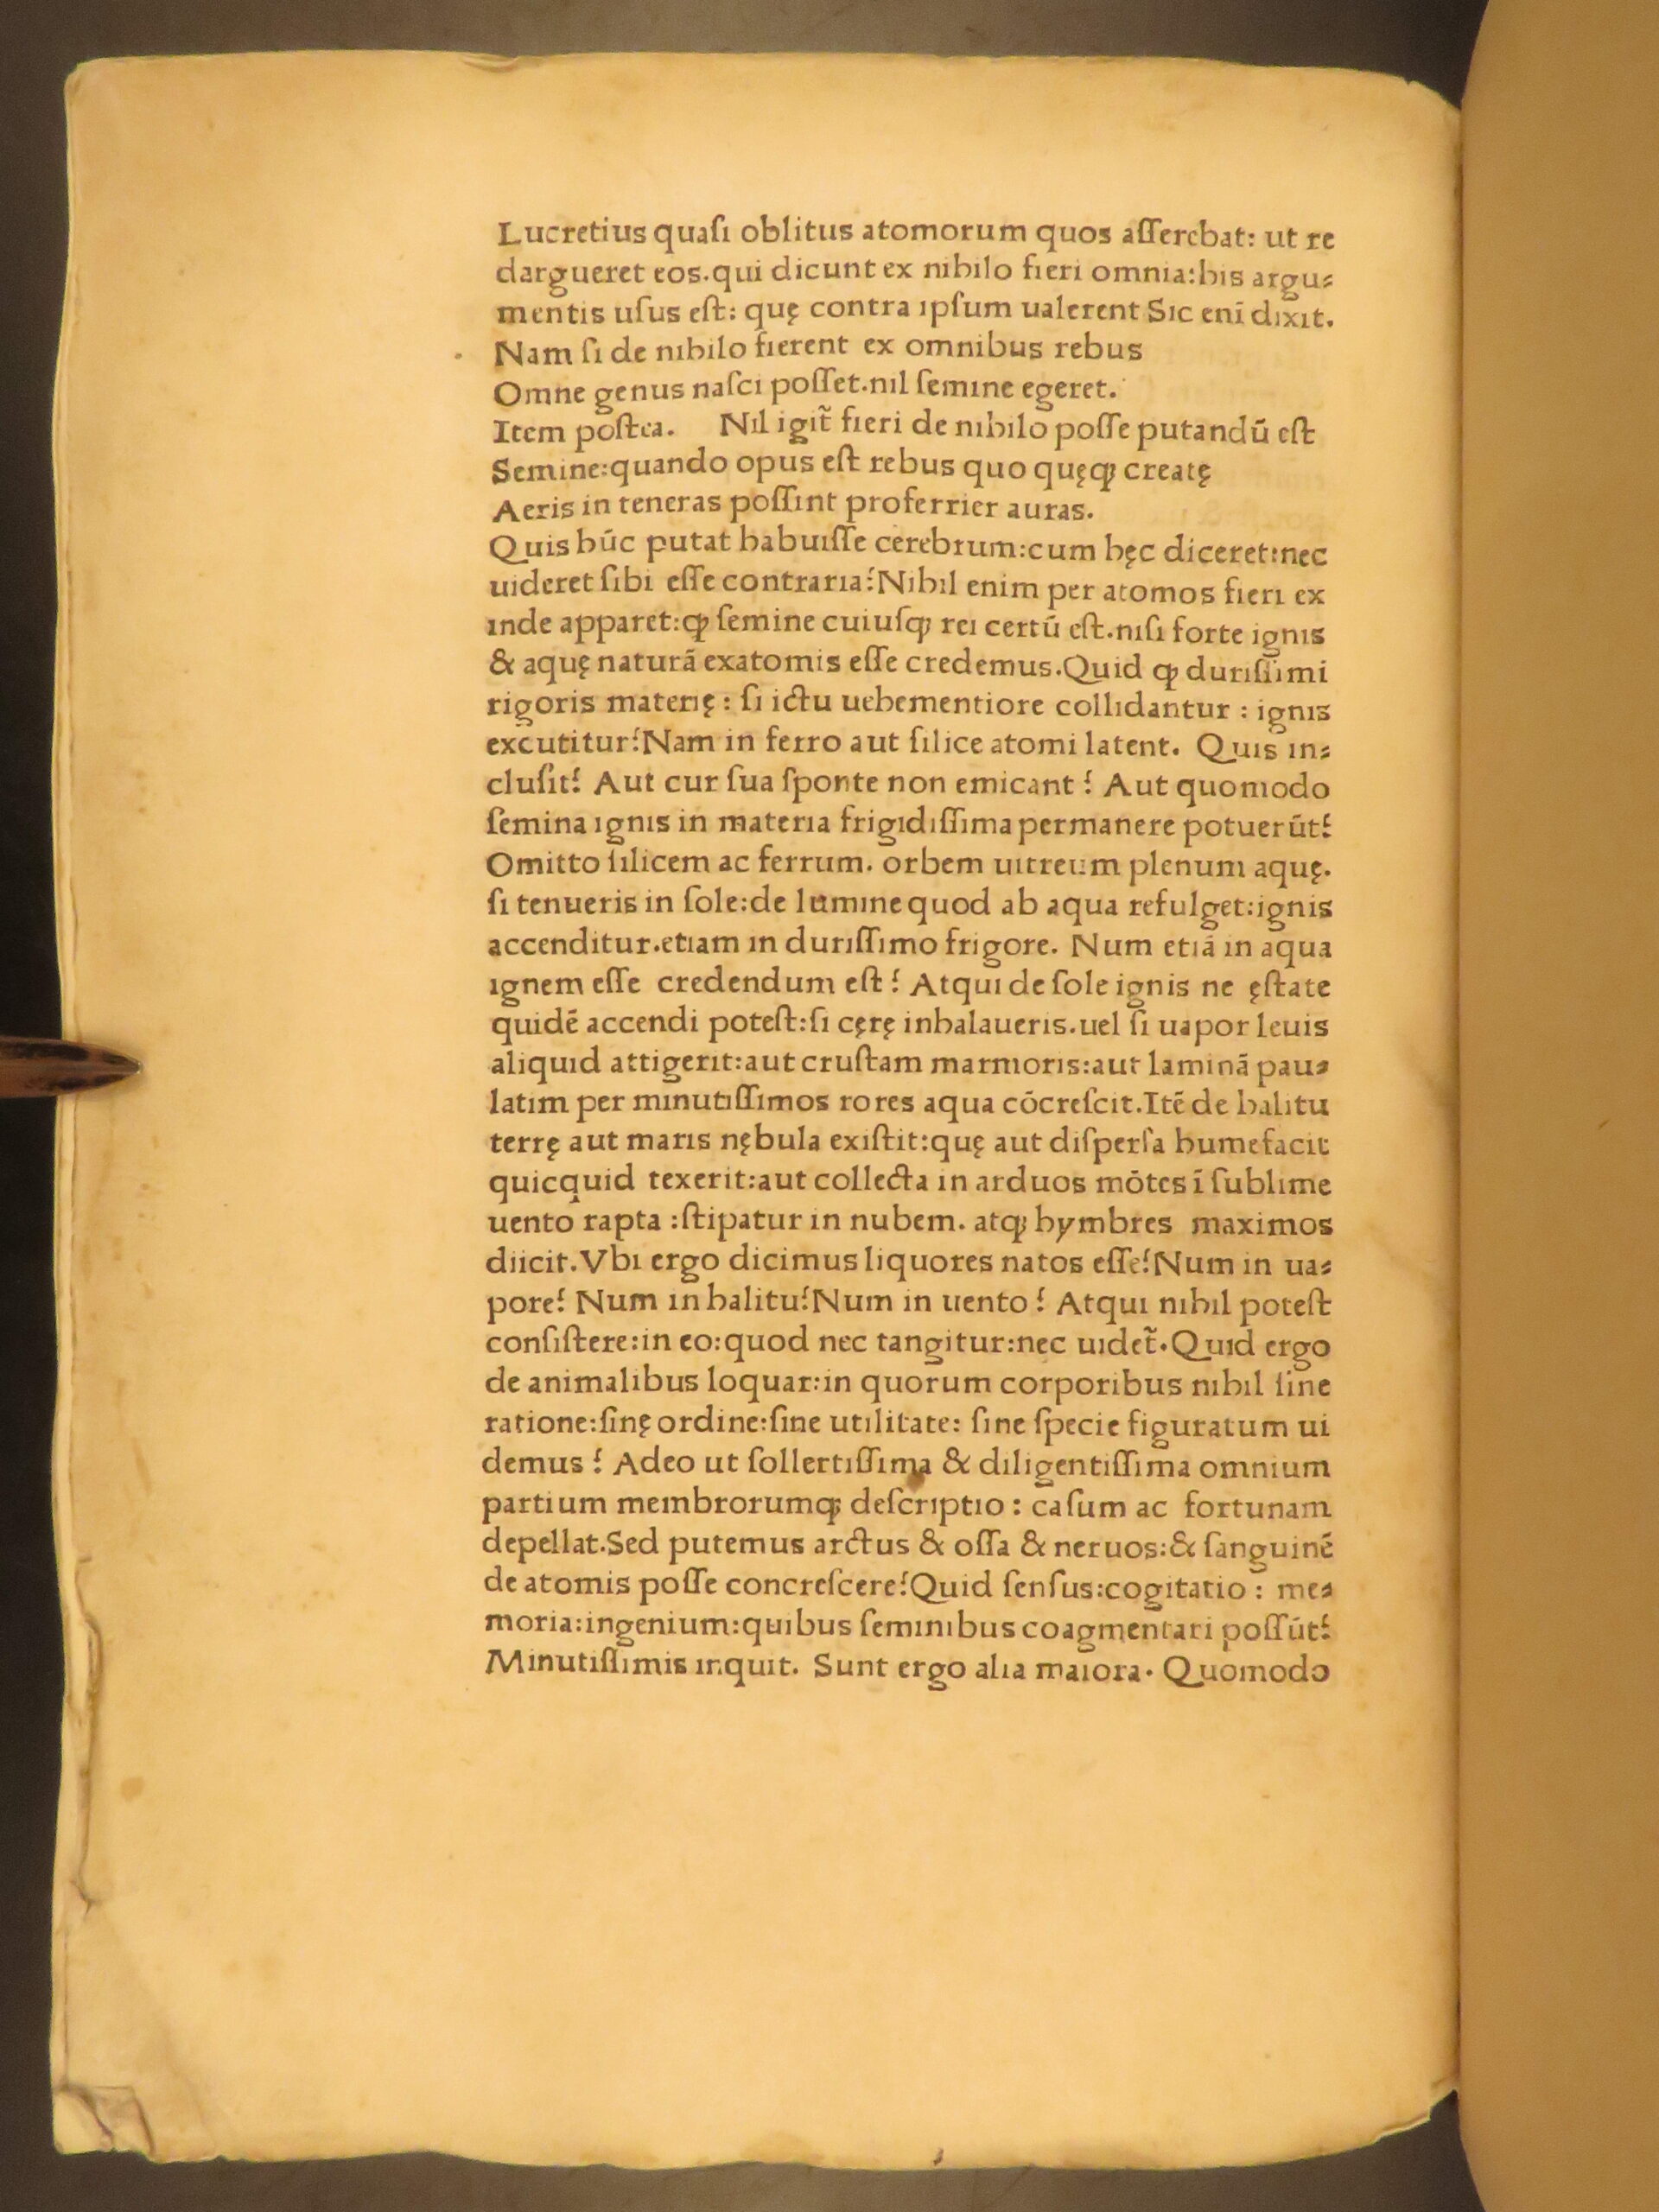 Lucretius quaſi oblitus atomorum quos aſſerebat: ut re
dargueret eos.qui dicunt ex nihilo fieri omnia:his argu⸗
mentis uſus eſt: quę contra ipſum ualerent Sic enī dixit.
Nam ſi de nihilo fierent ex omnibus rebus
Omne genus naſci poſſet.nil ſemine egeret.
Item poſtea. Nil igit᷑ fieri de nihilo poſſe putandū eſt
Semine:quando opus eſt rebus quo quęqꝫ creatę
Aeris in teneras poſſint proferrier auras.
Quis hūc putat habuiſſe cerebrum:cum hęc diceret:nec
uideret ſibi eſſe contraria?Nihil enim per atomos fieri ex
inde apparet:ꝙ ſemine cuiuſqꝫ rei certū eſt.niſi forte ignis
& aquę naturā exatomis eſſe credemus.Quid ꝙ duriſſimi
rigoris materię : ſi ictu uehementiore collidantur : ignis
excutitur?Nam in ferro aut ſilice atomi latent. Quis in⸗
cluſit? Aut cur ſua ſponte non emicant ? Aut quomodo
ſemina ignis in materia frigidiſſima permanere potuerūt?
Omitto ſilicem ac ferrum. orbem uitreum plenum aquę.
ſi tenueris in ſole:de lumine quod ab aqua refulget:ignis
accenditur.etiam in duriſſimo frigore. Num etiā in aqua
ignem eſſe credendum eſt ? Atqui de ſole ignis ne ęſtate
quidē accendi poteſt:ſi cęrę inhalaueris.uel ſi uapor leuis
aliquid attigerit:aut cruſtam marmoris:aut laminā pau⸗
latim per minutiſſimos rores aqua cōcreſcit.Itē de halitu
terrę aut maris nębula exiſtit:quę aut diſperſa humefacit
quicquid texerit:aut collecta in arduos mōtes ī ſublime
uento rapta :ſtipatur in nubem. atqꝫ hymbres maximos
diicit.Vbi ergo dicimus liquores natos eſſe?Num in ua⸗
pore? Num in halitu?Num in uento ? Atqui nihil poteſt
conſiſtere:in eo:quod nec tangitur:nec uidet᷑.Quid ergo
de animalibus loquar:in quorum corporibus nihil ſine
ratione:ſinę ordine:ſine utilitate: ſine ſpecie figuratum ui
demus ? Adeo ut ſollertiſſima & diligentiſſima omnium
partium membrorumqꝫ deſcriptio : caſum ac fortunam
depellat.Sed putemus arctus & oſſa & neruos:& ſanguinē
de atomis poſſe concreſcere?Quid ſenſus:cogitatio : me⸗
moria:ingenium:quibus ſeminibus coagmentari poſſūt?
Minutiſſimis inquit. Sunt ergo alia maiora. Quomodo